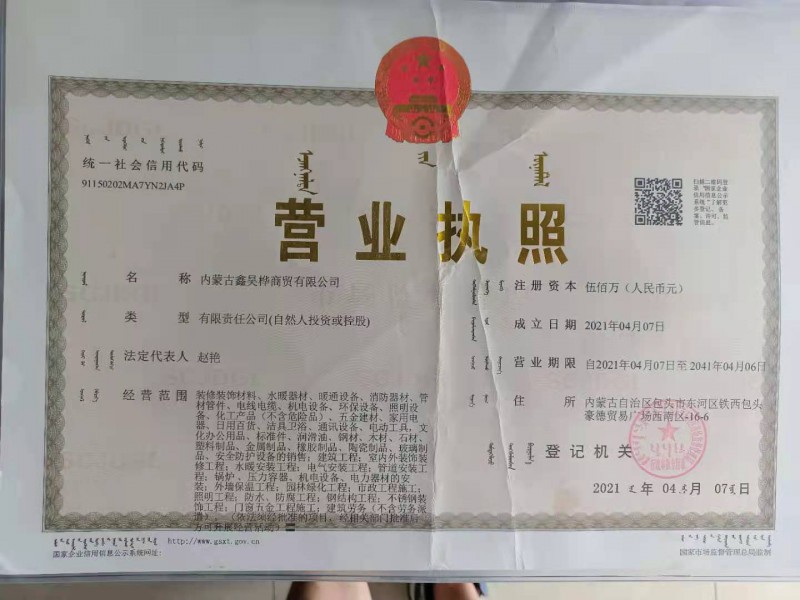 统一社会信用代码
91150202MA7YN2JA4P
扫描二维码登
录"国家企业
信用信息公示
系统"了解更
多登记、备
案、许可、监
管信息。
营业执照
名称 内蒙古鑫昊桦商贸有限公司
类型 有限责任公司(自然人投资或控股)
法定代表人 赵艳
经营范围 装修装饰材料、水暖器材、暖通设备、消防器材、管
材管件、电线电缆、机电设备、环保设备、照明设
备、化工产品（不含危险品）、五金建材、家用电
器、日用百货、洁具卫浴、通讯设备、电动工具，文
化办公用品、标准件、润滑油、钢材、木材、石材、
塑料制品、金属制品、橡胶制品、陶瓷制品、玻璃制
品、安全防护设备的销售；建筑工程；室内外装饰装
修工程；水暖安装工程；电气安装工程；管道安装工
程；锅炉、压力容器、机电设备、电力器材的安
装；外墙保温工程；园林绿化工程；市政工程施工；
照明工程；防水、防腐工程；钢结构工程；不锈钢装
饰工程；门窗五金工程施工；建筑劳务（不含劳务派
遣）（依法须经批准的项目，经相关部门批准后
方可开展经营活动）
注册资本 伍佰万（人民币元）
成立日期 2021年04月07日
营业期限 自2021年04月07日至 2041年04月06日
住所 内蒙古自治区包头市东河区铁西包头
豪德贸易广场西南区-16-6
登记机关
2021 年 04 月 07 日
国家企业信用信息公示系统网址： http://www.gsxt.gov.cn
国家市场监督管理总局监制